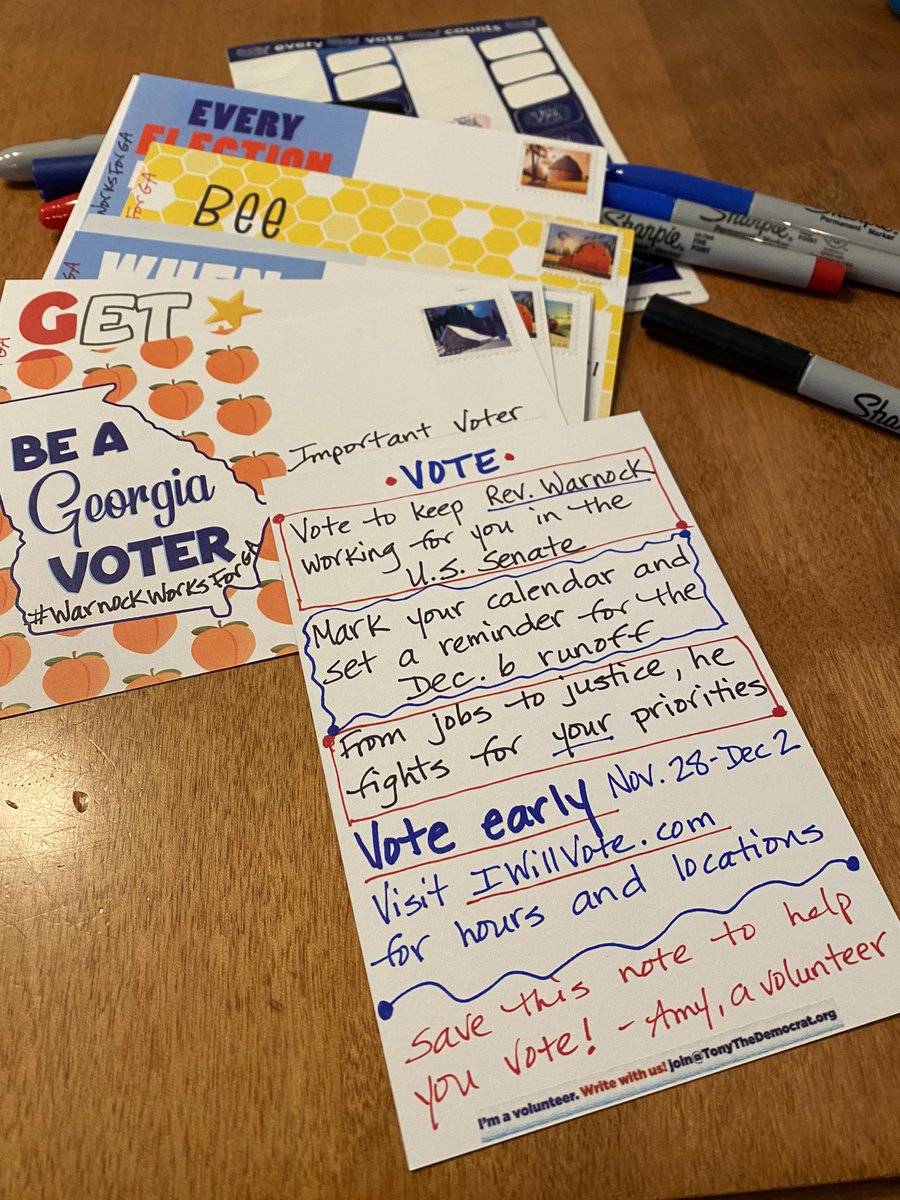 every vote counts
EVERY
ELECTION
WorksForGA
ForGA
Bee
WHEN
GA
GET
BE A
Georgia
VOTER
#WarnockWorksForGA
Important Voter
VOTE
Vote to keep Rev. Warnock
working for you in the
U.S. Senate
Mark your calendar and
set a reminder for the
Dec. 6 runoff
From jobs to justice, he
fights for your priorities
Vote early Nov. 28-Dec 2
Visit IWillVote.com
for hours and locations
Save this note to help
you vote! - Amy, a volunteer
I'm a volunteer. Write with us! join@TonyTheDemocrat.org
Sharpie
Permanent Marker
Sharpie
ULTRA FINE POINT
Permanent Marker
Sharpie